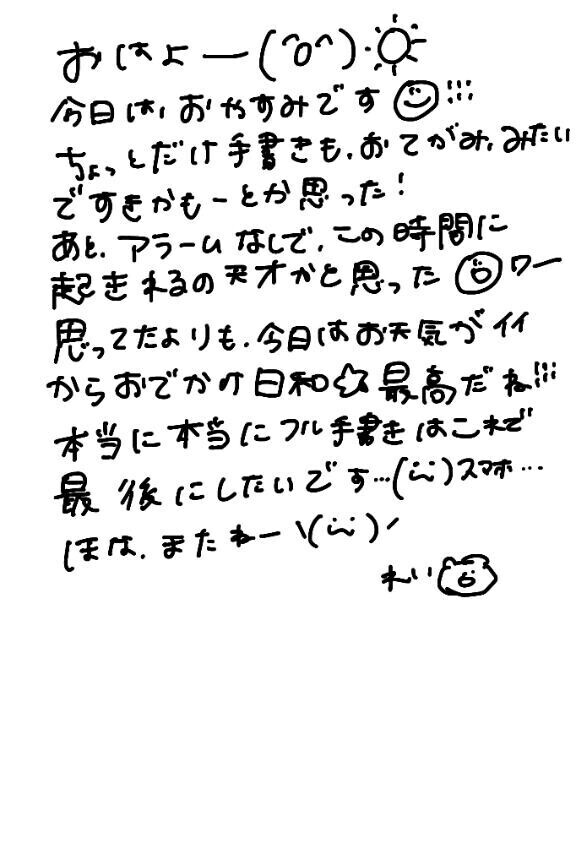 おはよー(^o^)・☀
今日は、おやすみです☺!!!
ちょっとだけ手書きも、おてがみ、みたい
ですきかもーとか思った!
あと、アラームなしで、この時間に
起きれるの天才かと思った 😃ワー
思ってたよりも、今日はお天気がイイ
からおでかけ日和☆最高だね!!!
本当に本当にフル手書きはこれで
最後にしたいです…(¨)スマホ…
ほな、またねー\(¨)/
れい